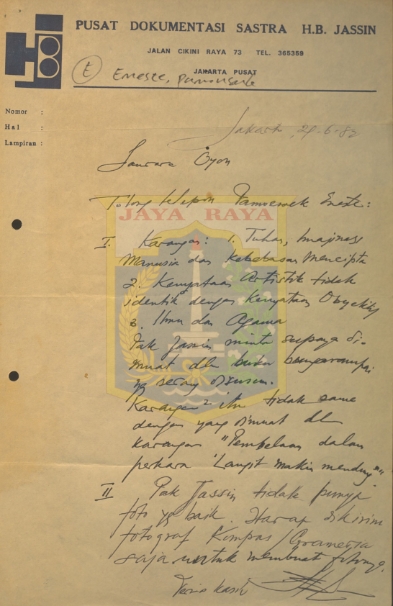 PUSAT DOKUMENTASI SASTRA H.B. JASSIN
JALAN CIKINI RAYA 73 TEL. 365359
JAKARTA PUSAT
(E) Eneste, Pamusuk
Nomor :
Hal :
Lampiran :
Jakarta, 29-6-82
Saudara Oyon
Tolong telepon Pamusuk Eneste:
JAYA RAYA
I. Karangan: 1. Tuhan, Imajinasi
Manusia dan Kebebasan Mencipta
2. Kenyataan Artistik tidak
identik dengan Kenyataan Obyektif
3. Ilmu dan Agama
Pak Jassin minta supaya di-
muat dlm buku
yg sering
Karangan2 itu tidak sama
dengan yang dimuat dlm
karangan "Pembelaan dalam
perkara 'Langit makin mendung'"
II Pak Jassin tidak punya
foto yg baik. Harap dikirim
fotograf Kompas/Gramedia
saja untuk membuat fotonya.
Terima kasih